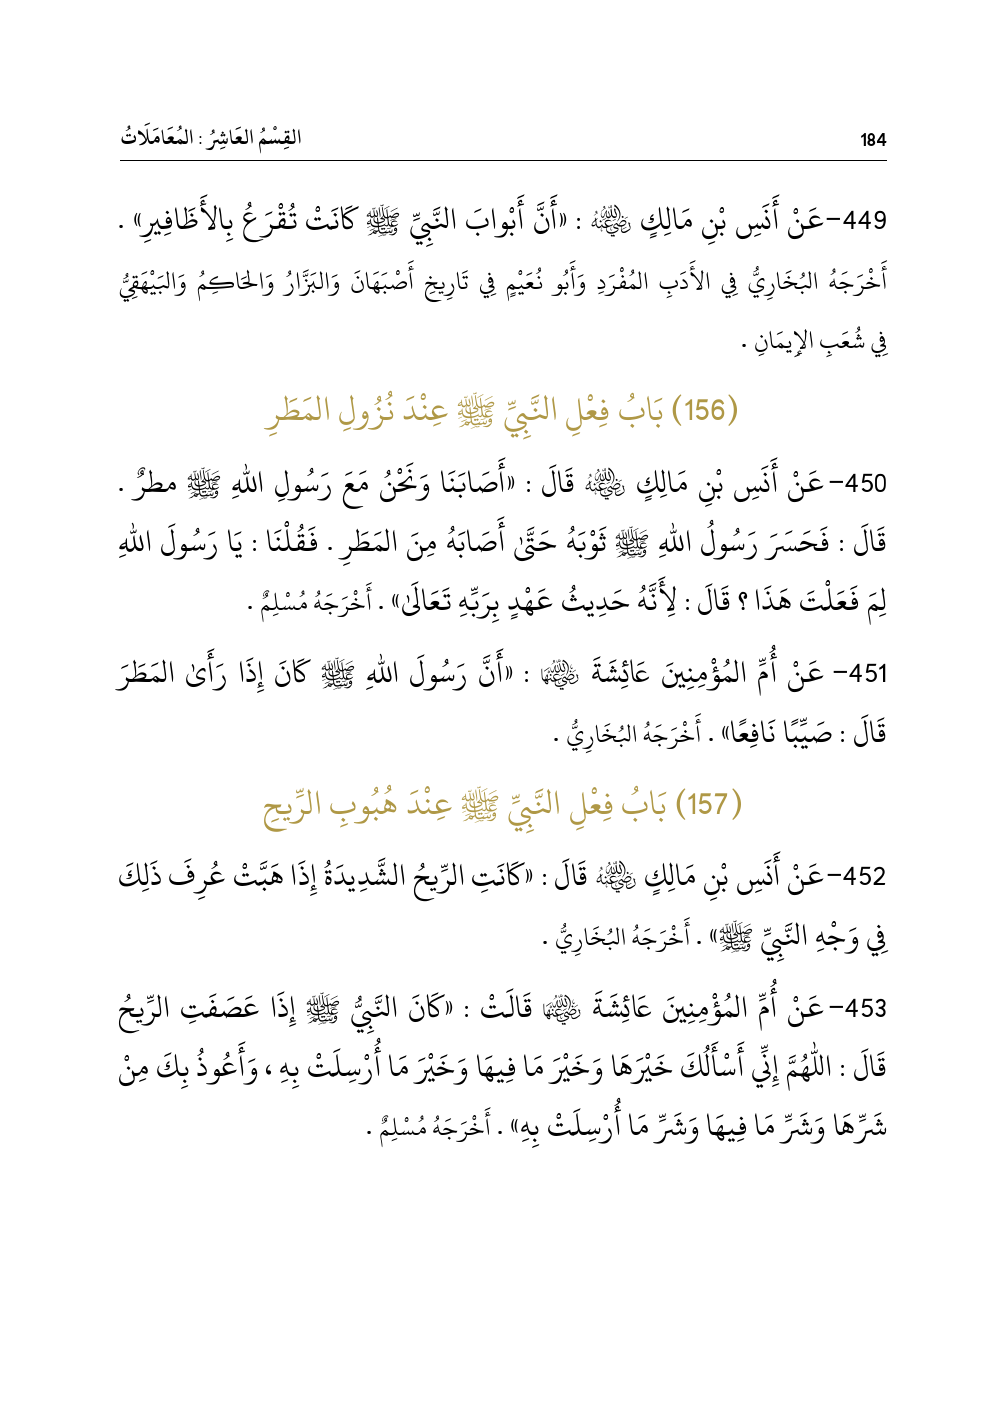 184
القِسْمُ العَاشِرُ : المُعَامَلَاتُ
449–عَنْ أَنَسِ بْنِ مَالِكٍ رَضِيَ اللهُ عَنْهُ : «أَنَّ أَبْوابَ النَّبِيِّ ﷺ كَانَتْ تُقْرَعُ بِالأَظَافِيرِ» .
أَخْرَجَهُ البُخَارِيُّ فِي الأَدَبِ المُفْرَدِ وَأَبُو نُعَيْمٍ فِي تَارِيخِ أَصْبَهَانَ وَالبَزَّارُ وَالحَاكِمُ وَالبَيْهَقِيُّ
فِي شُعَبِ الإِيمَانِ .
(156) بَابُ فِعْلِ النَّبِيِّ ﷺ عِنْدَ نُزُولِ المَطَرِ
450–عَنْ أَنَسِ بْنِ مَالِكٍ رَضِيَ اللهُ عَنْهُ قَالَ : «أَصَابَنَا وَنَحْنُ مَعَ رَسُولِ اللهِ ﷺ مطرٌ .
قَالَ : فَحَسَرَ رَسُولُ اللهِ ﷺ ثَوْبَهُ حَتَّىٰ أَصَابَهُ مِنَ المَطَرِ . فَقُلْنَا : يَا رَسُولَ اللهِ
لِمَ فَعَلْتَ هَذَا ؟ قَالَ : لِأَنَّهُ حَدِيثُ عَهْدٍ بِرَبِّهِ تَعَالَىٰ» . أَخْرَجَهُ مُسْلِمٌ .
451– عَنْ أُمِّ المُؤْمِنِينَ عَائِشَةَ رَضِيَ اللهُ عَنْهَا : «أَنَّ رَسُولَ اللهِ ﷺ كَانَ إِذَا رَأَىٰ المَطَرَ
قَالَ : صَيِّبًا نَافِعًا» . أَخْرَجَهُ البُخَارِيُّ .
(157) بَابُ فِعْلِ النَّبِيِّ ﷺ عِنْدَ هُبُوبِ الرِّيحِ
452–عَنْ أَنَسِ بْنِ مَالِكٍ رَضِيَ اللهُ عَنْهُ قَالَ : «كَانَتِ الرِّيحُ الشَّدِيدَةُ إِذَا هَبَّتْ عُرِفَ ذَلِكَ
فِي وَجْهِ النَّبِيِّ ﷺ» . أَخْرَجَهُ البُخَارِيُّ .
453–عَنْ أُمِّ المُؤْمِنِينَ عَائِشَةَ رَضِيَ اللهُ عَنْهَا قَالَتْ : «كَانَ النَّبِيُّ ﷺ إِذَا عَصَفَتِ الرِّيحُ
قَالَ : اللّٰهُمَّ إِنِّي أَسْأَلُكَ خَيْرَهَا وَخَيْرَ مَا فِيهَا وَخَيْرَ مَا أُرْسِلَتْ بِهِ ، وَأَعُوذُ بِكَ مِنْ
شَرِّهَا وَشَرِّ مَا فِيهَا وَشَرِّ مَا أُرْسِلَتْ بِهِ» . أَخْرَجَهُ مُسْلِمٌ .